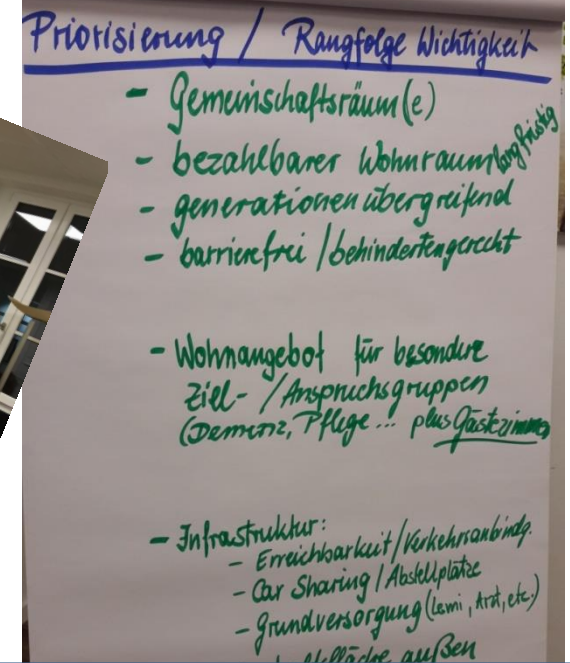 Priorisierung / Rangfolge Wichtigkeit
- Gemeinschaftsräum(e)
- bezahlbarer Wohnraum langfristig
- generationenübergreifend
- barrierefrei / behindertengerecht
- Wohnangebot für besondere
Ziel- / Anspruchsgruppen
(Demenz, Pflege... plus Gästezimmer
- Infrastruktur:
- Erreichbarkeit / Verkehrsanbindg.
- Car Sharing / Abstellplätze
- Grundversorgung (Lemi, Arzt, etc.)
außen